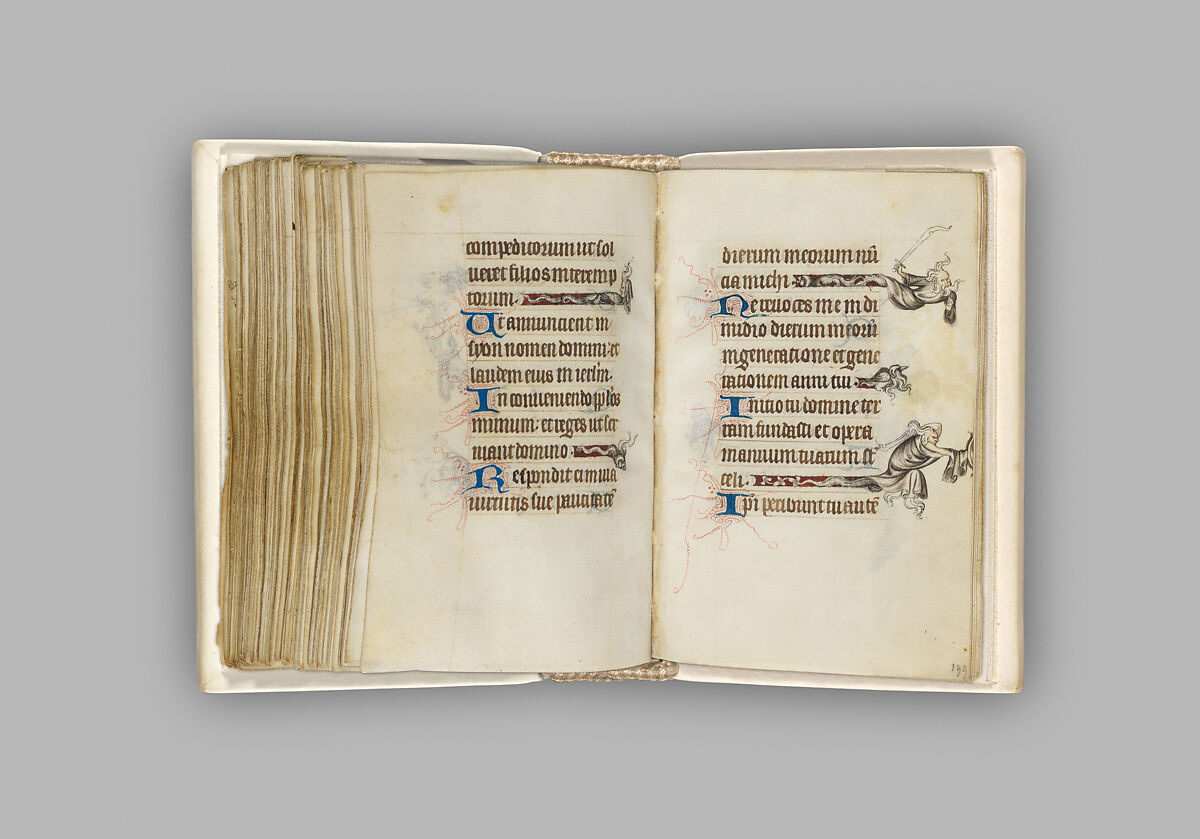 compeditorum ut sol
ueret filios interemp
torum.
Ut annuncient in
syon nomen domini: et
laudem eius in ierl̄m.
In conueniendo ppl̄os
in unum: et reges ut ser
uiant domino.
Respondit ei in uia
uirtutis sue paucitatē
dierum meorum nū
cia michi.
Ne reuoces me in di
midio dierum meorū
in generatione et gene
rationem anni tui.
Initio tu domine ter
ram fundasti et opera
manuum tuarum st̄
celi.
Ip̄i peribunt tu autē
199